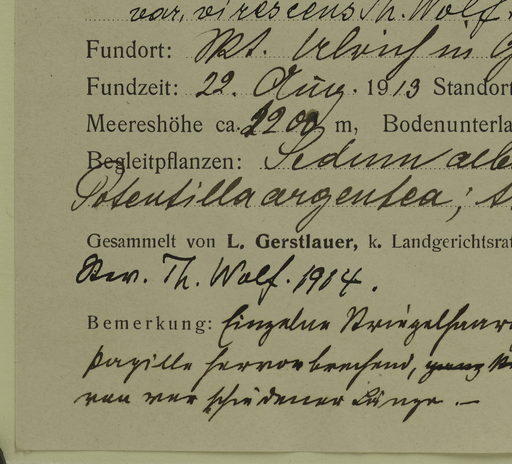 var. virescens Th. Wolf.
Fundort: Skt. Ulrich in G
Fundzeit: 22. Aug. 1913 Standort
Meereshöhe ca. 1200 m, Bodenunterla
Begleitpflanzen: Sedum alb
Potentilla argentea;
Gesammelt von L. Gerstlauer, k. Landgerichtsrat
Rev. Th. Wolf. 1914.
Bemerkung: Einzelne Striegelhaare
Papille hervorbrechend, ganz
von verschiedener Länge. —